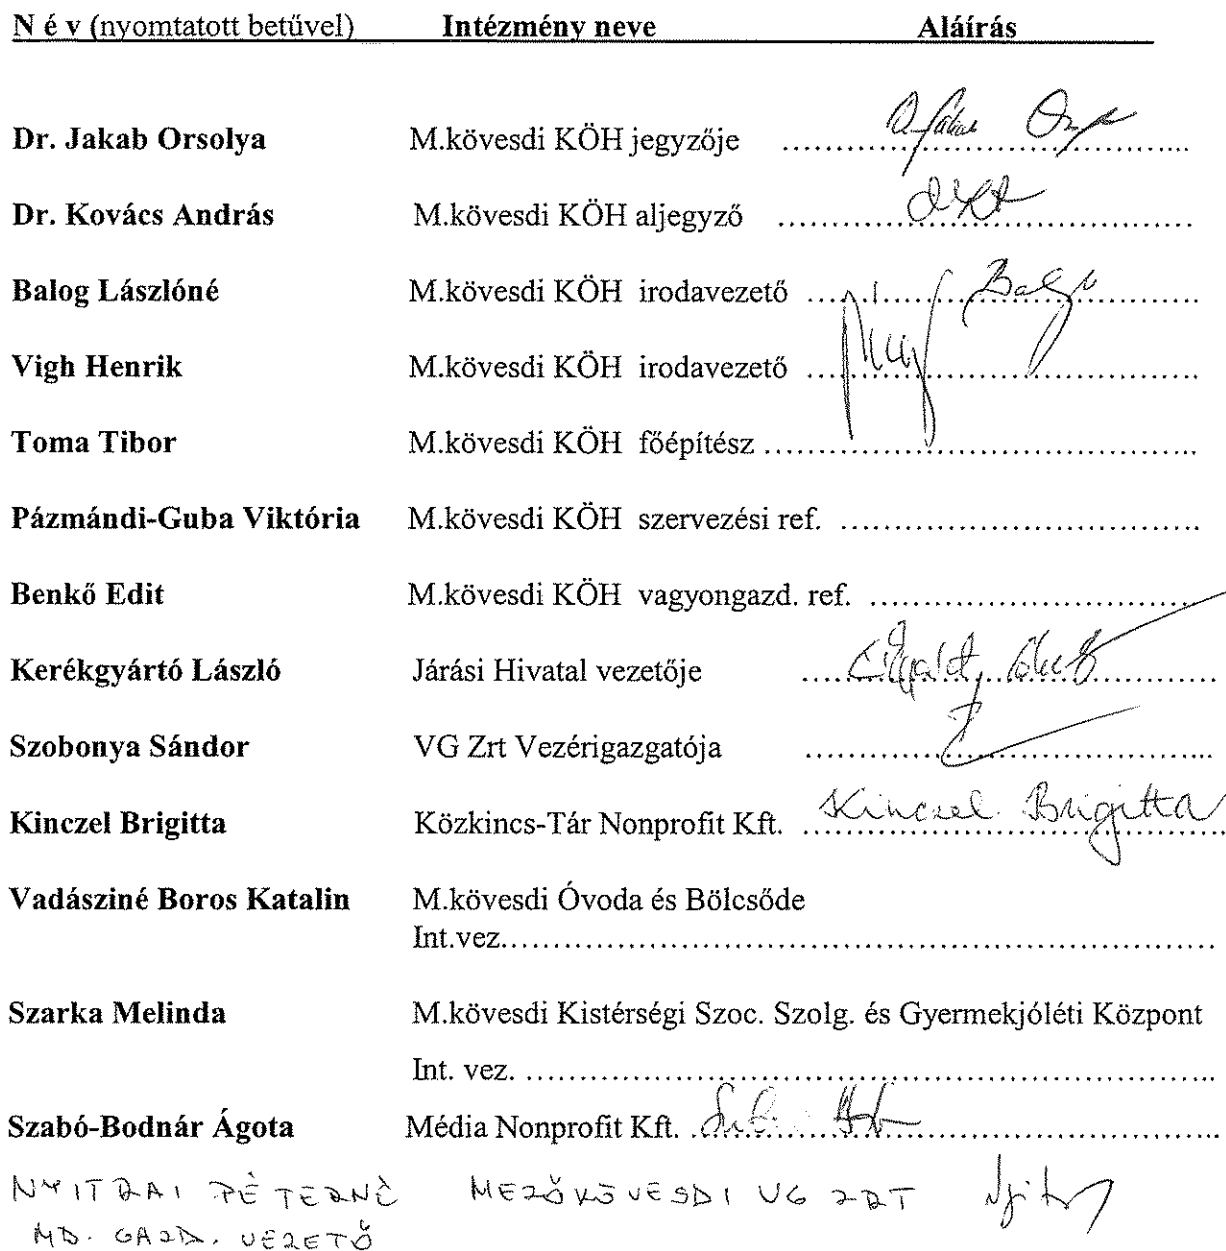 N é v (nyomtatott betűvel) Intézmény neve Aláírás
Dr. Jakab Orsolya M.kövesdi KÖH jegyzője ...........................................
Dr. Kovács András M.kövesdi KÖH aljegyző ...........................................
Balog Lászlóné M.kövesdi KÖH irodavezető ........................................ Balog
Vigh Henrik M.kövesdi KÖH irodavezető ........................................
Toma Tibor M.kövesdi KÖH főépítész ...........................................
Pázmándi-Guba Viktória M.kövesdi KÖH szervezési ref. ....................................
Benkő Edit M.kövesdi KÖH vagyongazd. ref. .................................
Kerékgyártó László Járási Hivatal vezetője ...........................................
Szobonya Sándor VG Zrt Vezérigazgatója ...........................................
Kinczel Brigitta Közkincs-Tár Nonprofit Kft. ........................................... Kinczel Brigitta
Vadásziné Boros Katalin M.kövesdi Óvoda és Bölcsőde
Int.vez...........................................................................
Szarka Melinda M.kövesdi Kistérségi Szoc. Szolg. és Gyermekjóléti Központ
Int. vez. .........................................................................
Szabó-Bodnár Ágota Média Nonprofit Kft. ......................................................
NYITRAI PÉTERNÉ MEZŐKÖVESDI VG ZRT
MB. GAZD. VEZETŐ